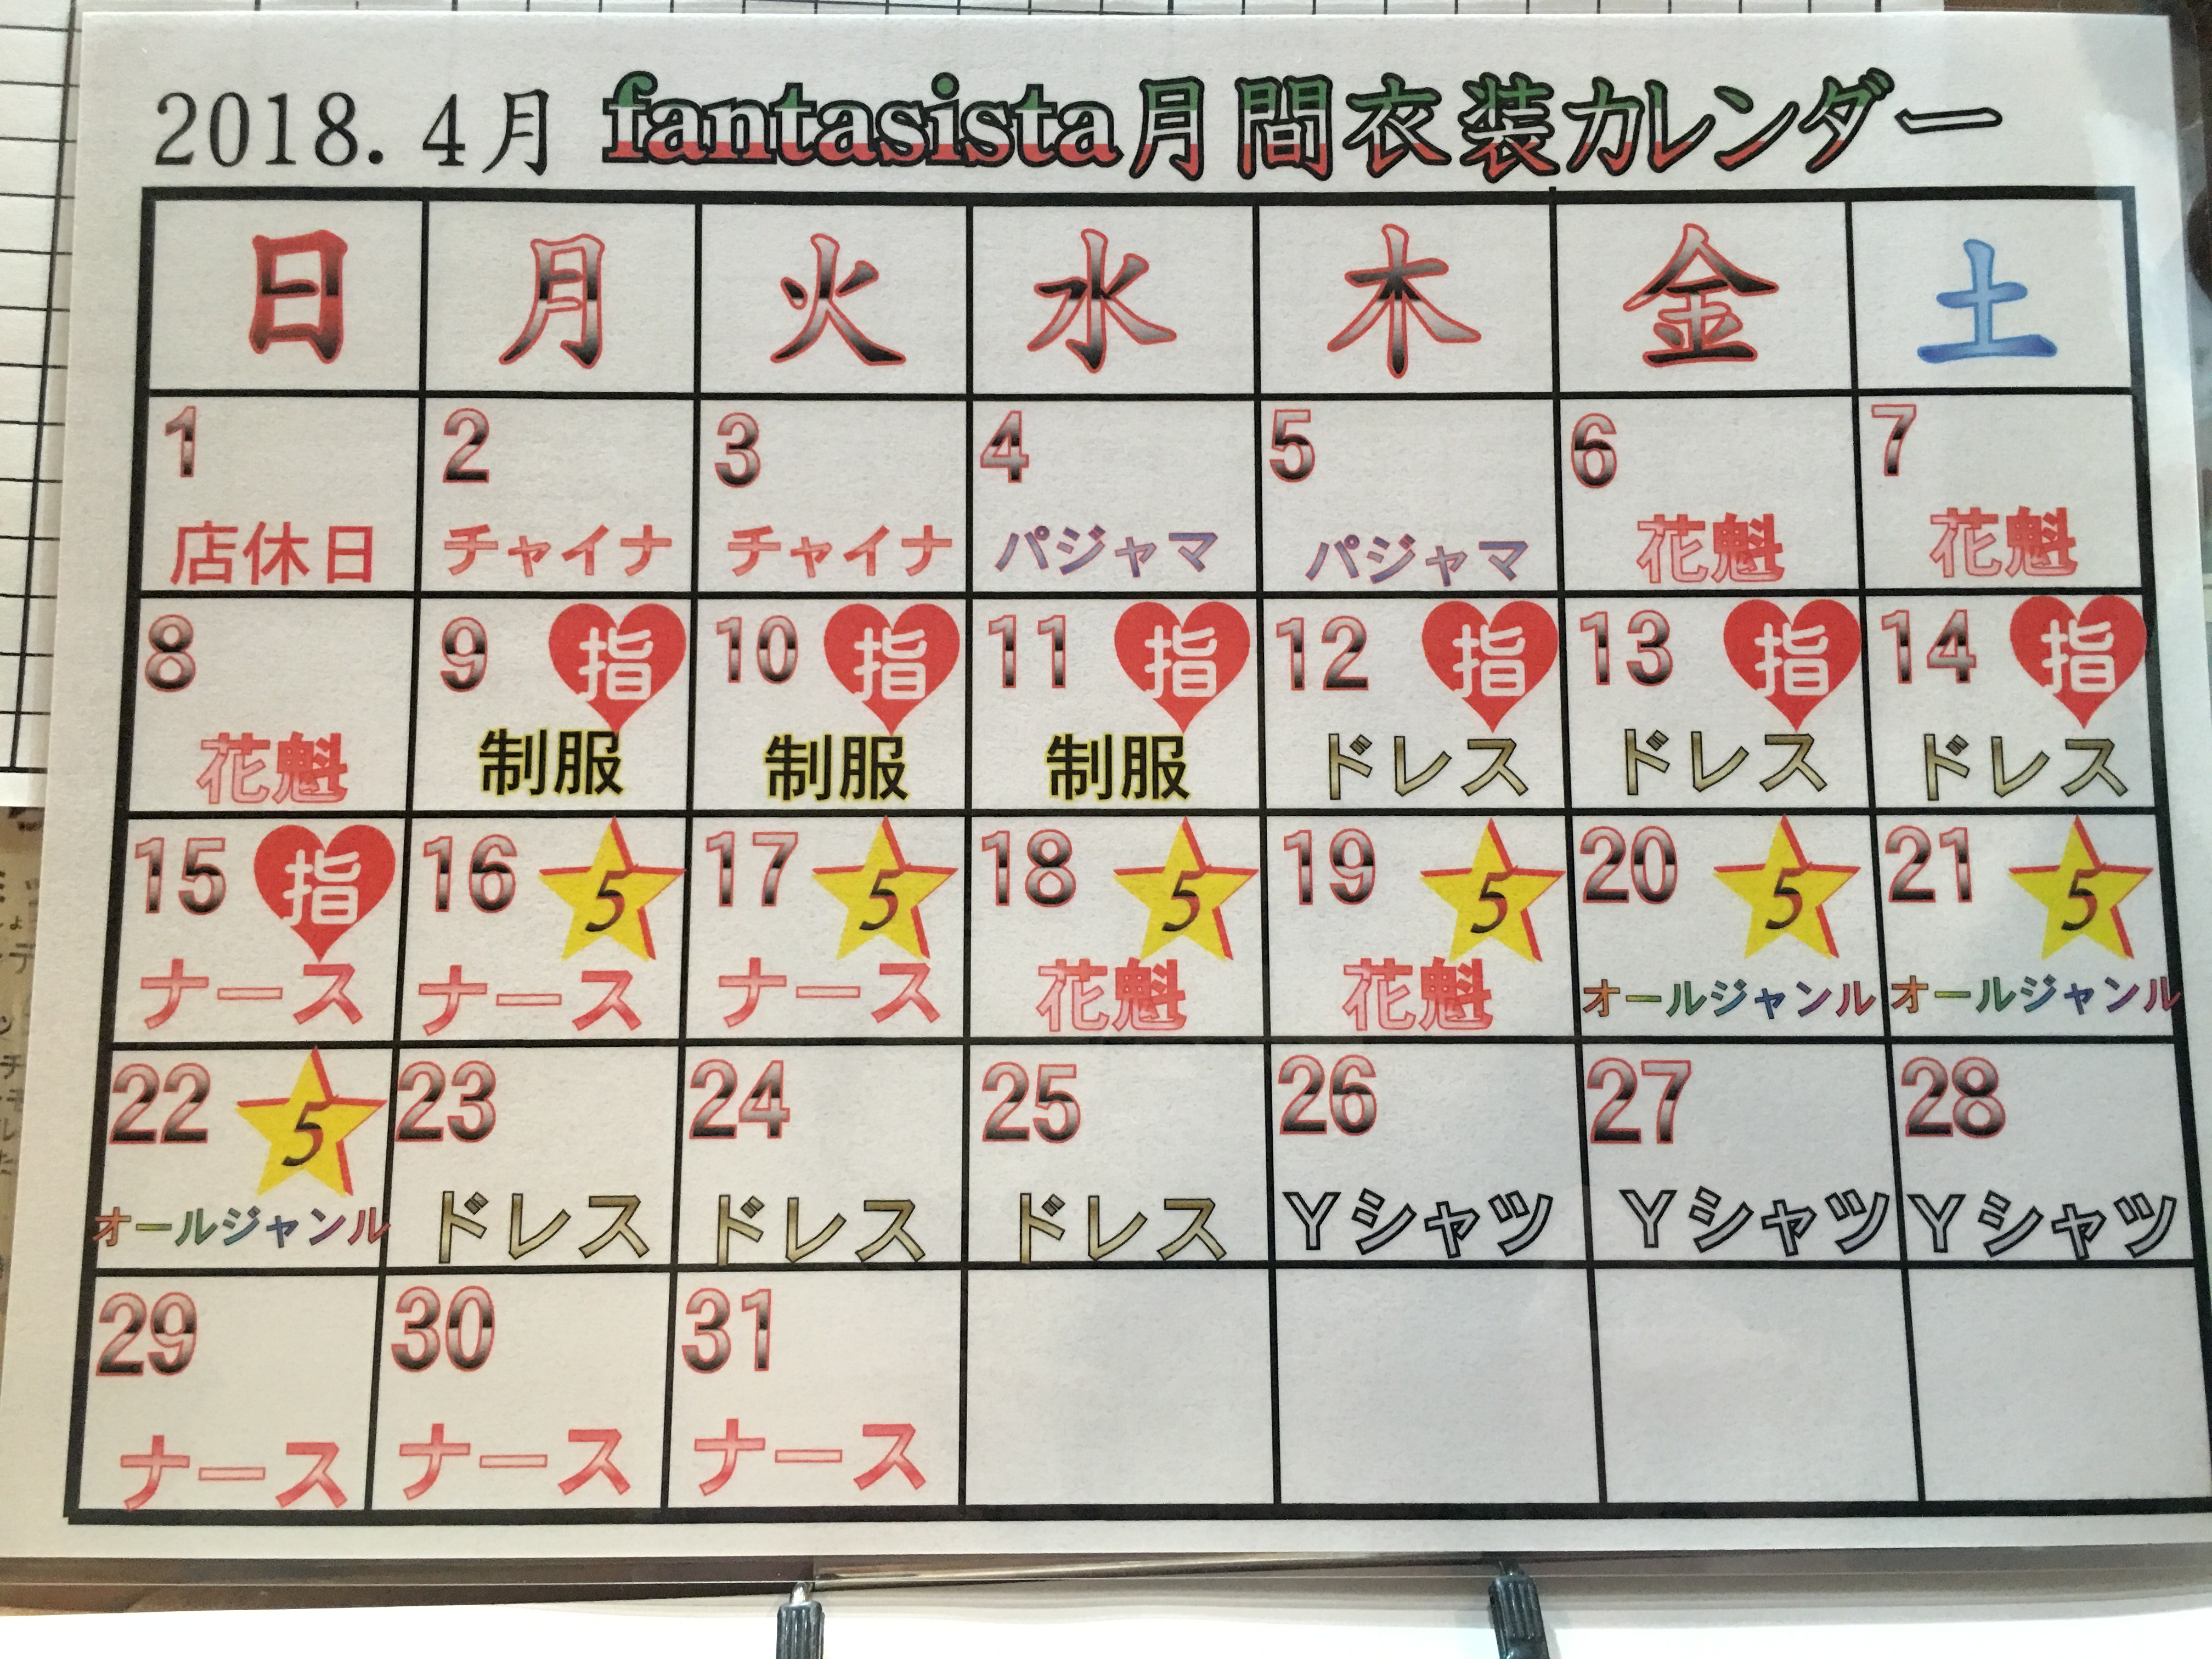 2018. 4月 fantasista月間衣装カレンダー
日 月 火 水 木 金 土
1 2 3 4 5 6 7
店休日 チャイナ チャイナ パジャマ パジャマ 花魁 花魁
8 9 指 10 指 11 指 12 指 13 指 14 指
花魁 制服 制服 制服 ドレス ドレス ドレス
15 指 16 5 17 5 18 5 19 5 20 5 21 5
ナース ナース ナース 花魁 花魁 オールジャンル オールジャンル
22 5 23 24 25 26 27 28
オールジャンル ドレス ドレス ドレス Yシャツ Yシャツ Yシャツ
29 30 31
ナース ナース ナース